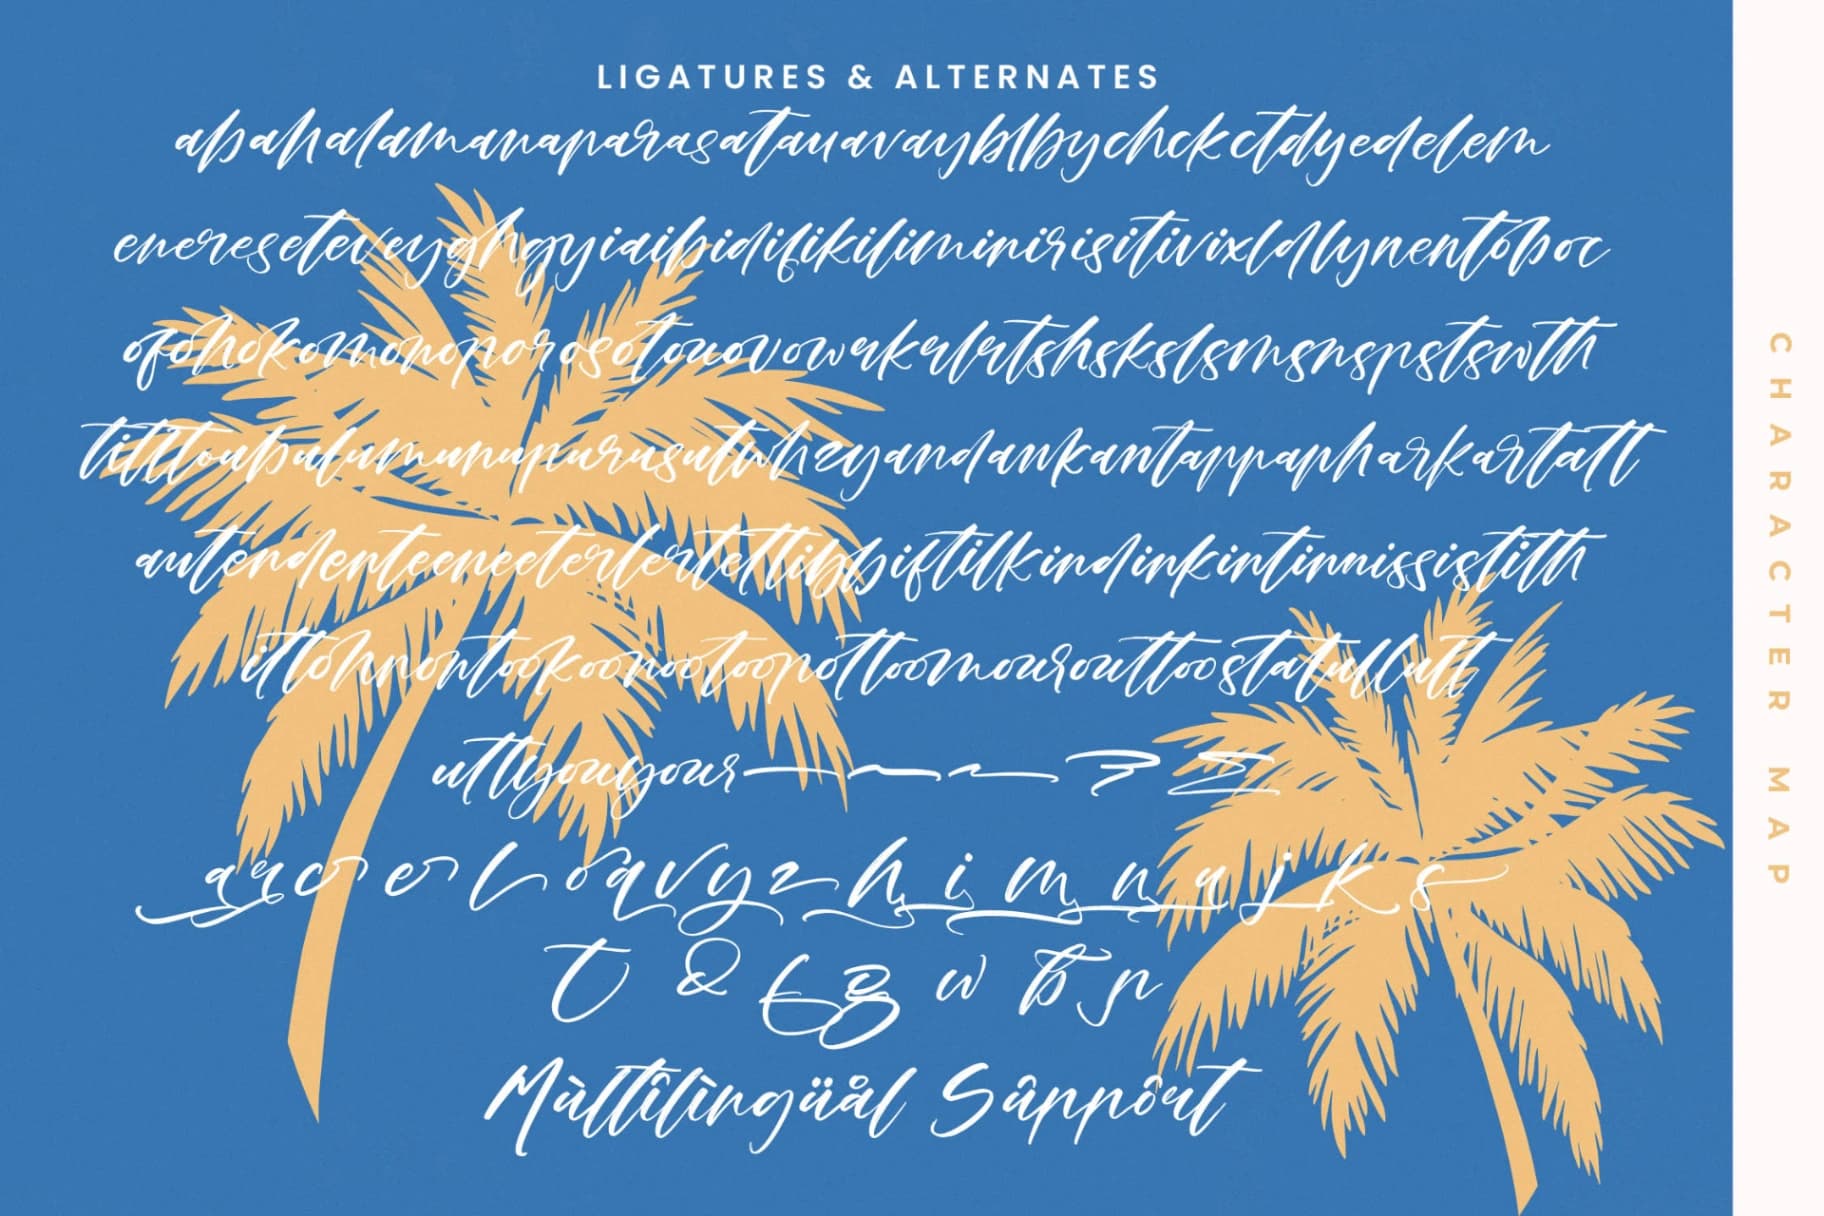 LIGATURES & ALTERNATES
abahalamanaparasatauavayblbychckctdyedelem
enereseteveyghgyiaibidifikiliminirisitivixldlynentoboc
ofohokomonoporosotouovowrkrlrtshskslsmsnspstswth
titlttoubulumunupurusutwhzyandankantappapharkartatt
autendenteeneeterlertettibbbiftilkindinkintinnissistith
ittohnontookoonootoopottoomourouttoostatullutt
uttyouyour
a r c o e r l o a v y z h i m n u j k s
t & f g w b p
Mùltîlìngüål Sûppôrt
CHARACTER MAP